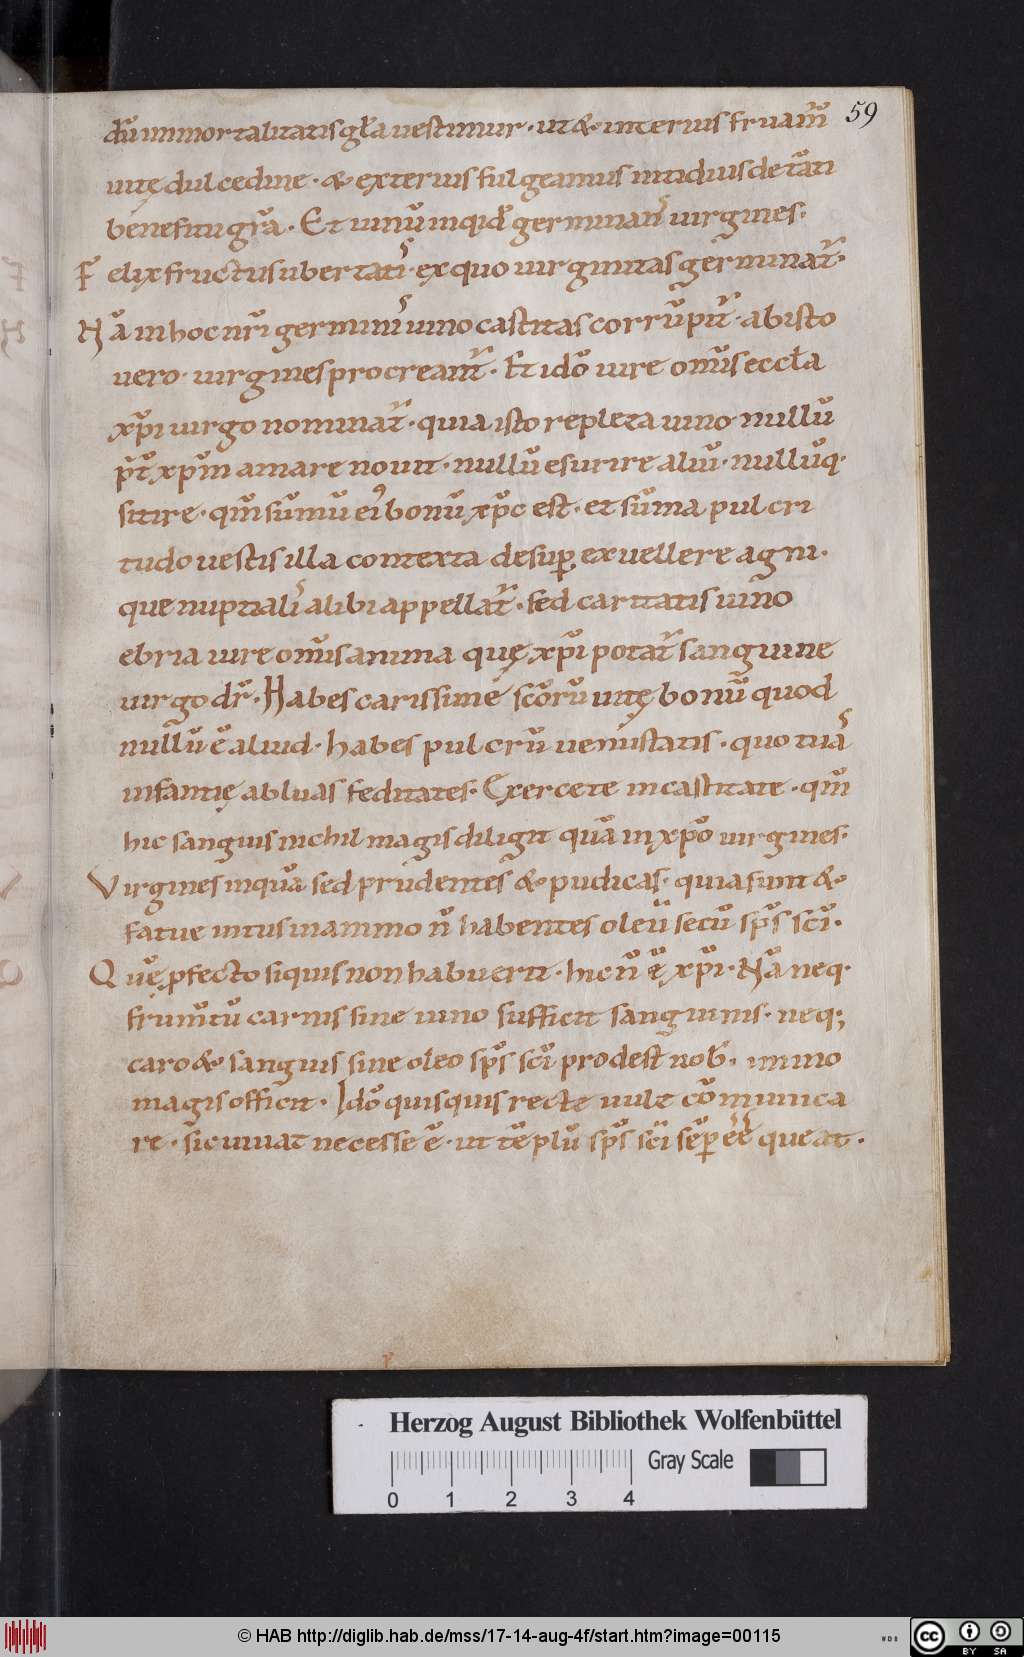 59
dũ immortalitatis gła uestimur · ut & interius fruam̃
uitę dulcedine · & exterius fulgeamus nitidius de tãti
benefitii gr̃a · Et uinũ inqid germinan̄s uirgines·
Felix fructus ubertatis · ex quo uirginitas germinat̃·
Nã in hoc nr̃i germinis uino castitas corrũpit̃ · ab isto
uero · uirgines procreant̃ · Et idõ iure om̃s eccła
xp̃i uirgo nominat̃ · quia isto repleta uino nullũ
p̃t xp̃m amare nouit · nullũ esurire aliũ · nullũq·
sitire · qm̃ sũmũ ei' bonũ xp̃c est · et sũma pulcri
tudo uestis illa contexta desup̱ ex uellere agni ·
que nuptialis alibi appellat̃ · sed caritatis uino
ebria iure om̃is anima quę xp̃i potat̃ sanguine
uirgo dr̃ · Habes carissime scõrũ uitę bonũ quod
nullũ ẽ aliud · habes pulcrũ uenustatis · quo tuãs
infantię abluas feditates · Exercete in castitate · qm̃
hic sanguis nichil magis diligit quã in xp̃o uirgines·
Virgines inquã sed prudentes & pudicas · quia sunt &
fatue intus in animo ñ habentes oleũ secũ sp̃s sc̃i ·
Quẽ p̱fecto siquis non habuerit · hic ñ ẽ xp̃i · Nã neq·
frum̃tũ carnis sine uino sufficit sanguinis · neq;
caro & sanguis sine oleo sp̃s sc̃i prodest nob̃ · immo
magis officit · Idõ quisquis recte uult cõmunica
re · sic uiuat necesse ẽ · ut tẽplũ sp̃s sc̃i sẽp̱ eẽ queat ·
Herzog August Bibliothek Wolfenbüttel
Gray Scale
0 1 2 3 4
© HAB http://diglib.hab.de/mss/17-14-aug-4f/start.htm?image=00115
WDB
cc BY SA